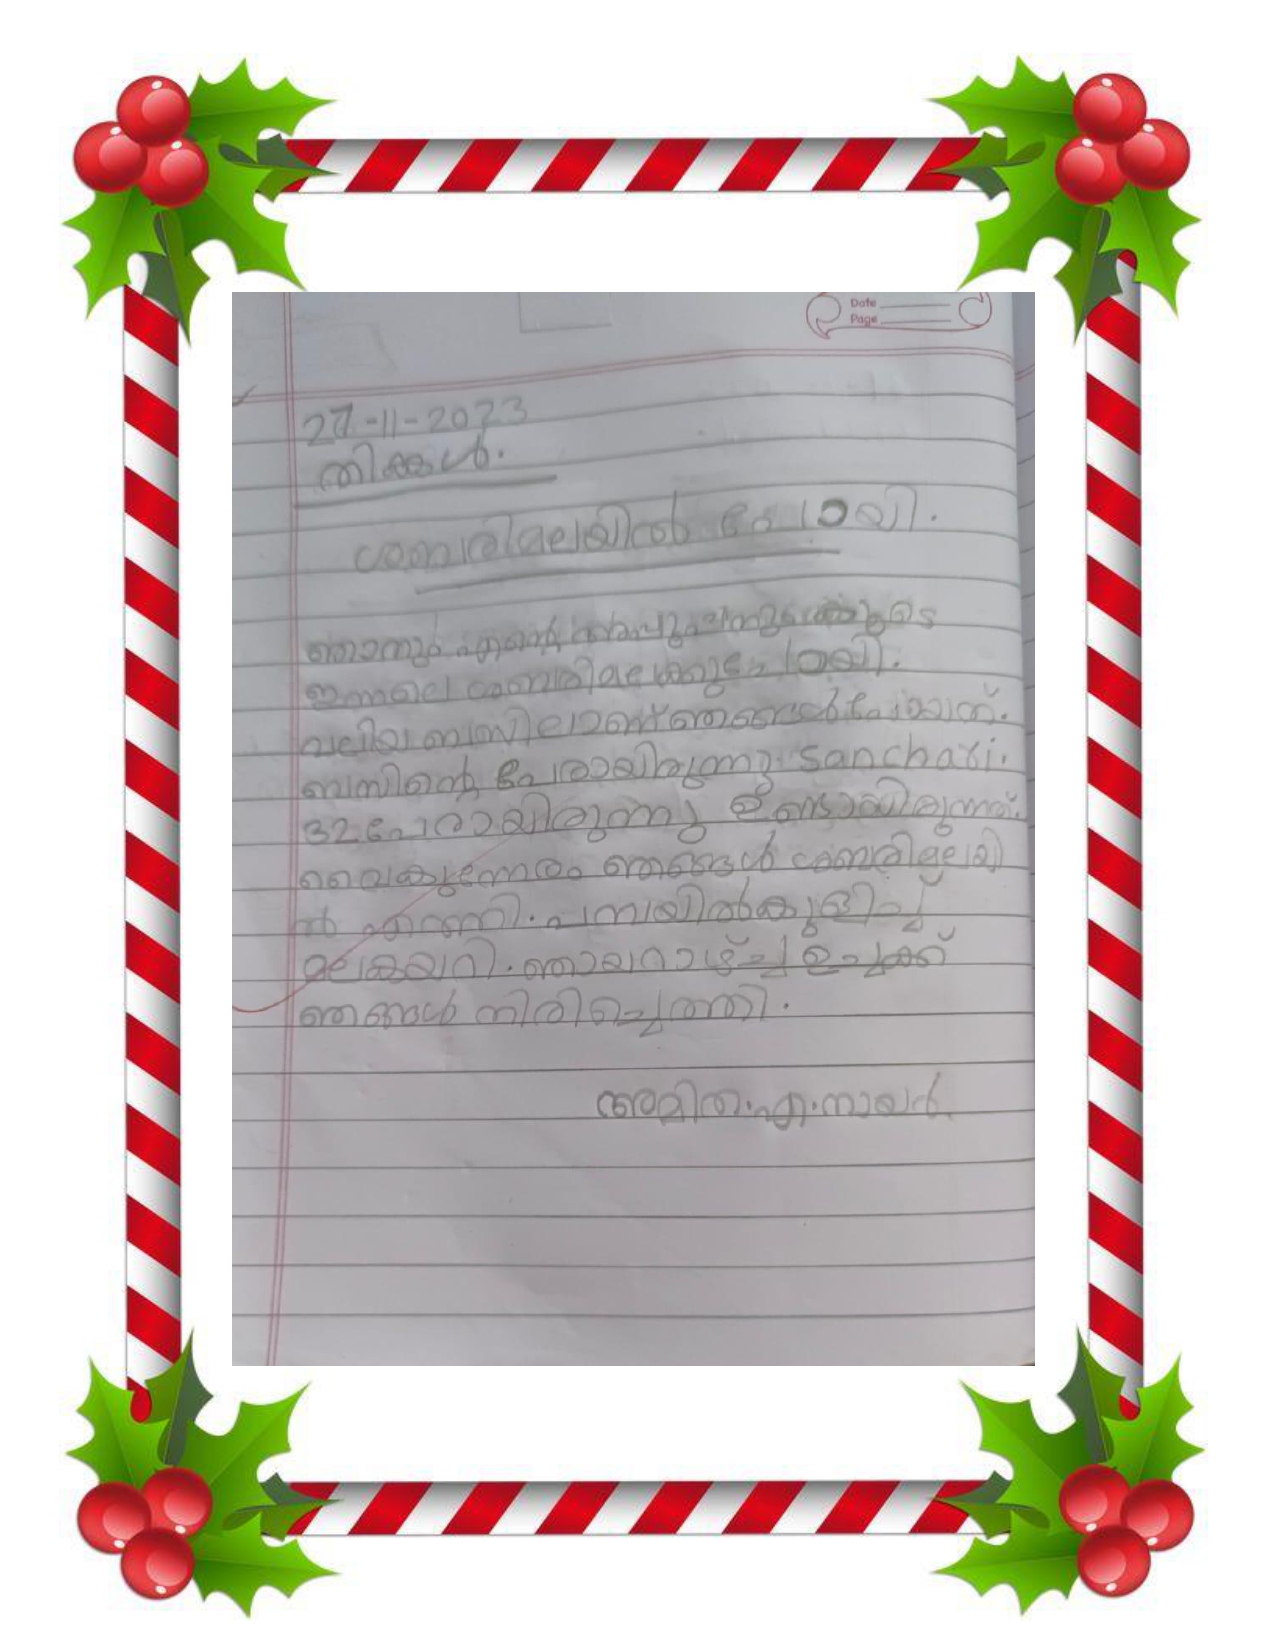 Date
Page
27-11-2023
തിങ്കൾ.
ശബരിമലയിൽ പോയി.
ഞാനും എന്റെ
ഇന്നലെ ശബരിമലക്കു പോയി.
വലിയ ബസിലാണ് ഞങ്ങൾ പോയത്.
ബസിന്റെ പേരായിരുന്നു Sanchari.
32 പേരായിരുന്നു ഉണ്ടായിരുന്നത്.
വൈകുന്നേരം ഞങ്ങൾ ശബരിമലയി
ൽ എത്തി. പമ്പയിൽ കുളിച്ച്
മലകയറി. ഞായറാഴ്ച്ച ഉച്ചക്ക്
ഞങ്ങൾ തിരിച്ചെത്തി.
അമിത.എ.നായർ.